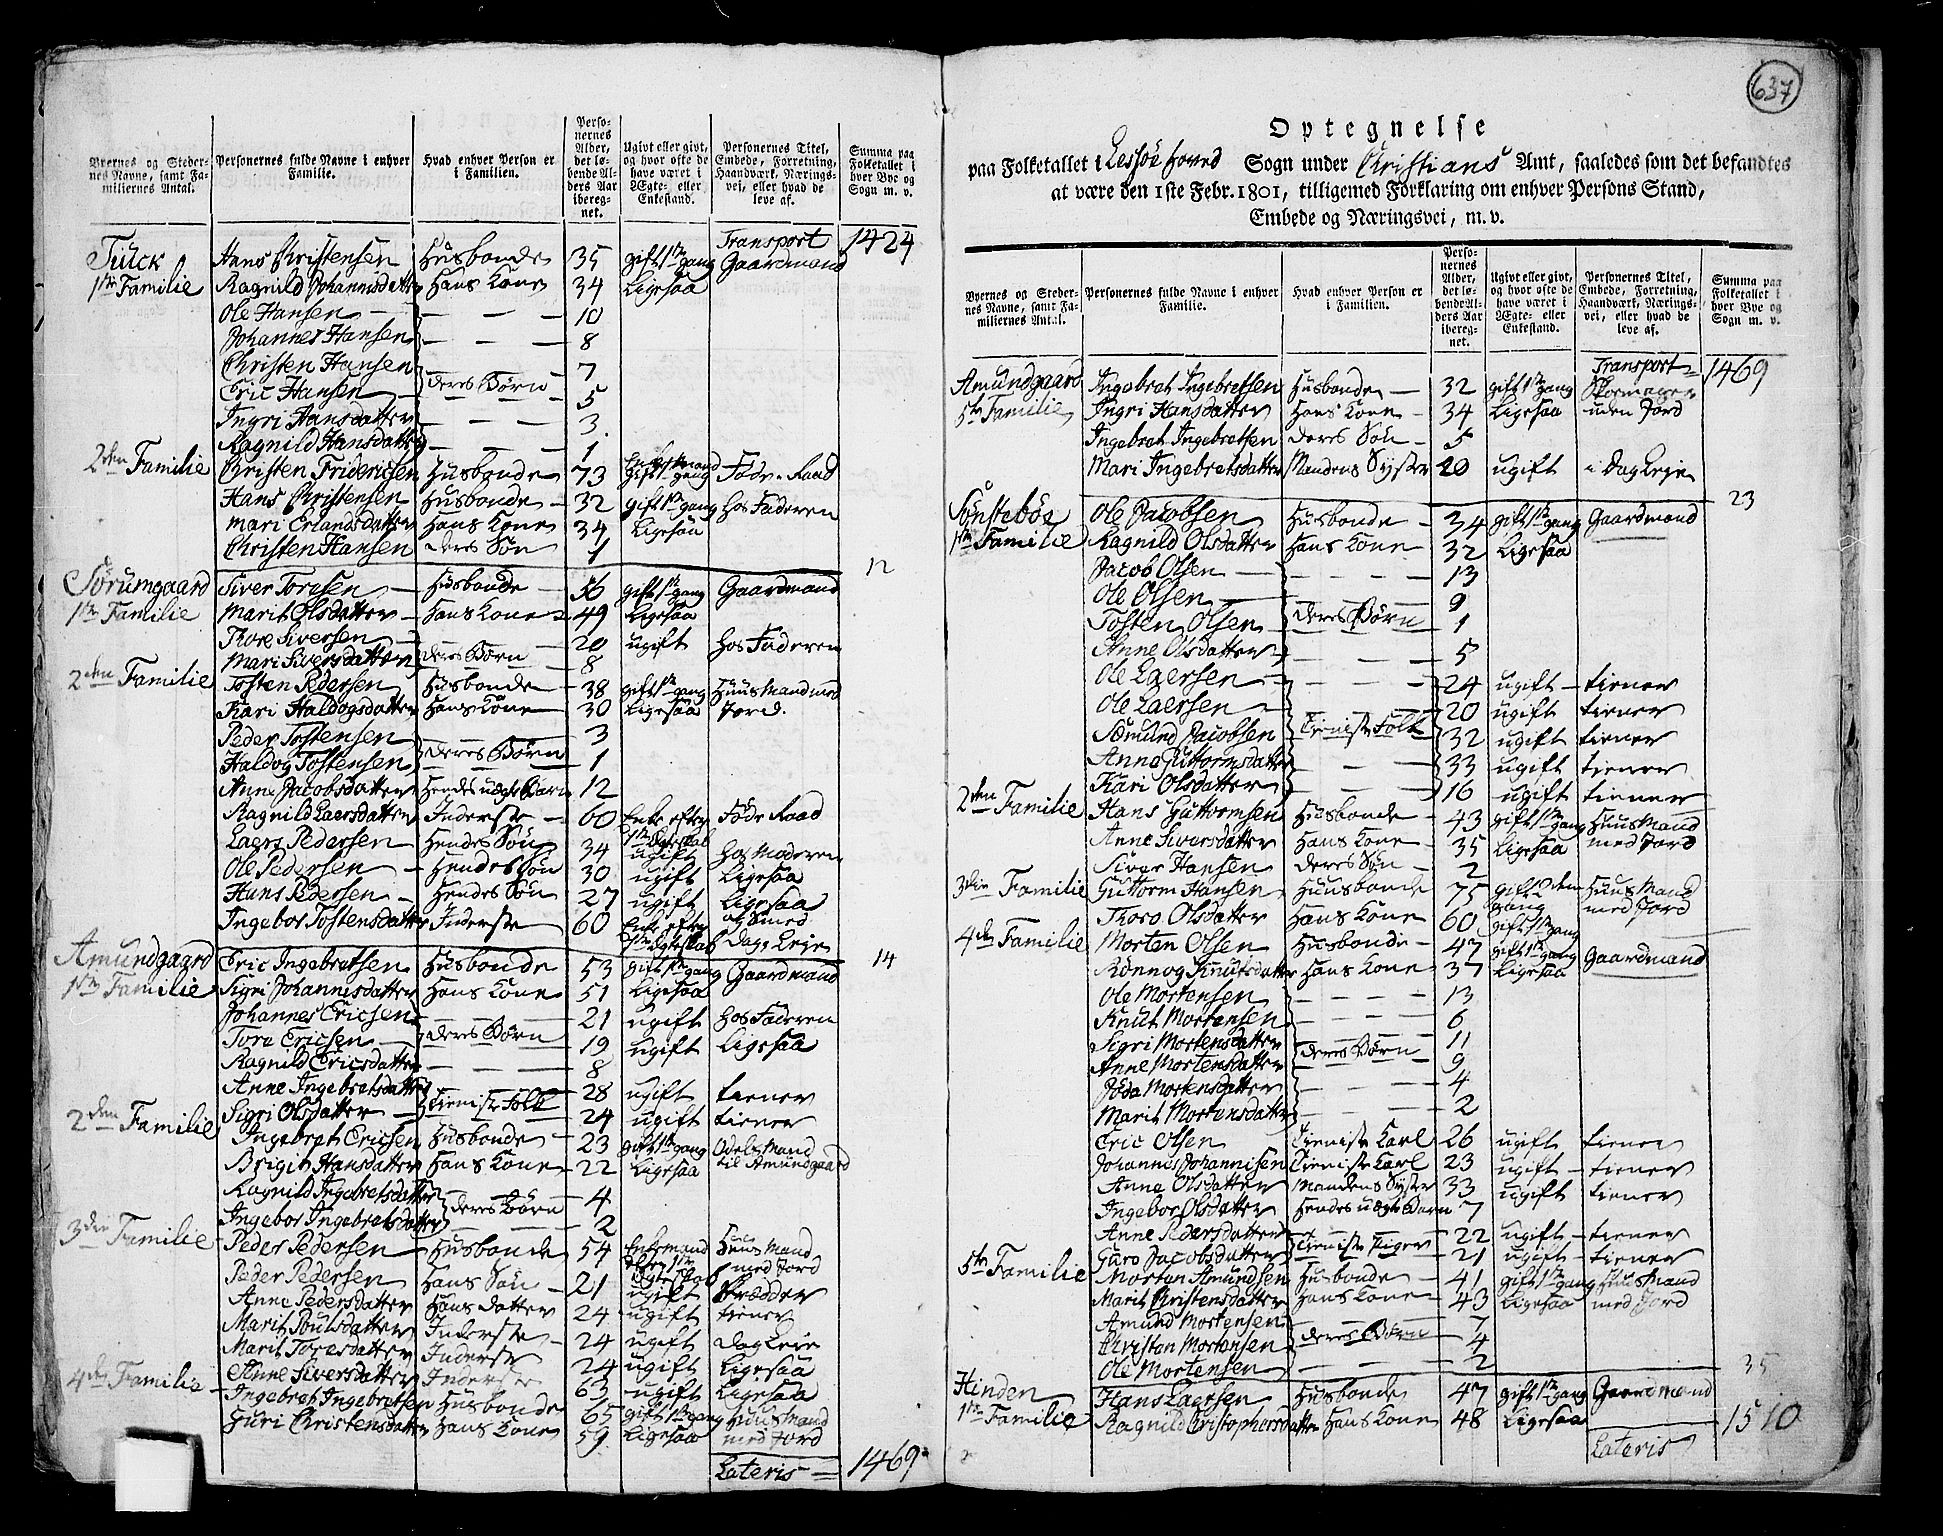 Byernes og Steder-
nes Navne, samt Fa-
miliernes Antal.
Personernes fulde Navne i enhver
Familie.
Hvad enhver Person er
i Familien.
Perso-
nernes
Alder,
det lø-
bende Al-
ders Aar
ibereg-
net.
Ugivt eller givt,
og hvor ofte de
have været i
Ægte- eller
Enkestand.
Personernes Titel,
Embede, Forretning,
Haandværk, Nærings-
vei, eller hvad de
leve af.
Summa paa
Folketallet i
hver Bye og
Sogn m. v.
Transport 1424
Tuck Hans Christensen Husbonde 35 gift 1ste gang Gaardmand
1ste Familie Ragnild Johannisdatter Hans Kone 34 Ligesaa
Ole Hansen — — — 10
Johannes Hansen — — — 8
Christen Hansen 7
Eric Hansen deres Börn 5
Ingri Hansdatter — — — 3
Ragnild Hansdatter — — — 1
2den Familie Christen Friderichsen Husbonde 73 Enkemand Gift 1ste gang Föde-Raad
Hans Christensen Husbonde 32 gift 1ste gang hos Faderen
Mari Erlandsdatter Hans Kone 34 Ligesaa
Christen Hansen deres Sön 1
12
Sörumgaard Siver Toresen Husbonde 56 gift 1ste gang Gaardmand
1ste Familie Marit Olsdatter Hans Kone 49 Ligesaa
Thore Siversen 20 ugift hos Faderen
Mari Siversdatter deres Börn 8
2den Familie Tosten Pedersen Husbonde 38 gift 1ste gang Huusmand med
Kari Haldogsdatter Hans Kone 30 Ligesaa Jord.
Peder Tostensen 3
Haldog Tostensen deres Börn 1
Anne Jacobsdatter Hendes uægte Barn 12
Ragnild Laersdatter Inderste 60 Enke efter 1ste Ægteskab Föde Raad
Laers Pedersen Hendes Sön 34 ugift hos Moderen
Ole Pedersen Hendes Sön 30 ugift Ligesaa
Hans Pedersen Hendes Sön 27 ugift Ligesaa og Smed
Ingebor Tostensdatter Inderste 60 Enke efter 1ste Ægteskab Dag Leje
14
Amundgaard Eric Ingebretsen Husbonde 53 gift 1ste gang Gaardmand
1ste Familie Sigri Johannisdatter Hans Kone 51 Ligesaa
Johannes Ericsen 21 ugift hos Faderen
Tore Ericsen deres Börn 19 ugift Ligesaa
Ragnild Ericsdatter 8
Anne Ingebretsdatter 28 ugift tiener
Sigri Olsdatter Tieniste Folk 24 ugift tiener
2den Familie Ingebret Ericsen Husbonde 23 gift 1ste gang Odels Mand
Brigit Hansdatter Hans Kone 22 Ligesaa til Amundgaard
Ragnild Ingebretsdatter 4
Ingebor Ingebretsdatter deres Börn 2
3die Familie Peder Pedersen Husbonde 54 Enkemand efter 1ste Ægteskab Huus Mand med Jord
Peder Pedersen Hans Sön 21 ugift Skrædder
Anne Pedersdatter Hans datter 24 ugift tiener
Marit Poulsdatter Inderste 24 ugift dagLeje
Marit Toresdatter Inderste 24 ugift Ligesaa
Anne Siversdatter Inderste 63 ugift Ligesaa
4de Familie Ingebret Ingebretsen Husbonde 65 gift 1ste gang Huus Mand
Guri Christensdatter Hans Kone 59 Ligesaa med Jord
Lateris 1469
637
Optegnelse
paa Folketallet i Lessöe hoved Sogn under Christians Amt, saaledes som det befandtes
at være den 1ste Febr. 1801, tilligemed Forklaring om enhver Persons Stand,
Embede og Næringsvei, m. v.
Byernes og Steder-
nes Navne, samt Fa-
miliernes Antal.
Personernes fulde Navne i enhver
Familie.
Hvad enhver Person er
i Familien.
Perso-
nernes
Alder,
det lø-
bende Al-
ders Aar
ibereg-
net.
Ugivt eller givt,
og hvor ofte de
have været i
Ægte- eller
Enkestand.
Personernes Titel,
Embede, Forretning,
Haandværk, Nærings-
vei, eller hvad de
leve af.
Summa paa
Folketallet i
hver Bye og
Sogn m. v.
Transport 1469
Amundgaard Ingebret Ingebretsen Husbonde 32 gift 1ste gang Skoemager
5te Familie Ingri Hansdatter Hans Kone 34 Ligesaa uden Jord
Ingebret Ingebretsen deres Sön 5
Mari Ingebretsdatter Mandens Syster 20 ugift i Dag Leje
23
Sönsteböe Ole Jacobsen Husbonde 34 gift 1ste gang Gaardmand
1ste Familie Ragnild Olsdatter Hans Kone 32 Ligesaa
Jacob Olsen — — — 13
Ole Olsen — — — 9
Tosten Olsen deres Börn 1
Anne Olsdatter — — — 5
Ole Laersen — — — 24 ugift tiener
Ole Laersen 20 ugift tiener
Sömund Jacobsen Tieniste Folk 32 ugift tiener
Anne Guttormsdatter — — — 33 ugift tiener
Kari Olsdatter — — — 16 ugift tiener
2den Familie Hans Guttormsen Husbonde 43 gift 1ste gang Huus Mand
Anne Siversdatter Hans Kone 35 Ligesaa med Jord
Siver Hansen deres Sön 2
3die Familie Guttorm Hansen Huusbonde 75 gift 2den gang Huus Mand
Thoro Olsdatter Hans Kone 60 gift 1ste gang med Jord
4de Familie Morten Olsen Husbonde 47 gift 1ste gang Gaardmand
Rönnog Knutsdatter Hans Kone 37 Ligesaa
Ole Mortensen — — — 13
Knut Mortensen — — — 6
Sigri Mortensdatter 11
Anne Mortensdatter deres Börn 9
Jöda Mortensdatter — — — 4
Marit Mortensdatter — — — 2
Eric Olsen Tieniste Karl 26 ugift tiener
Johannis Johannisen Tieniste Karl 23 ugift tiener
Anne Olsdatter Mandens Syster 33 ugift tiener
Ingebor Olsdatter Hendes uægte Barn 7
Anne Pedersdatter 22 ugift tiener
Guro Jacobsdatter Tieniste Piger 21 ugift tiener
5te Familie Morten Amundsen Husbonde 41 gift 1ste gang Huus Mand
Marit Christensdatter Hans Kone 43 Ligesaa med Jord
Amund Mortensen 7
Christen Mortensen deres Börn 4
Ole Mortensen — — — 2
35
Hinden Hans Laersen Husbonde 47 gift 1ste gang Gaardmand
1ste Familie Ragnild Christophersdatter Hans Kone 48 Ligesaa
Lateris 1510